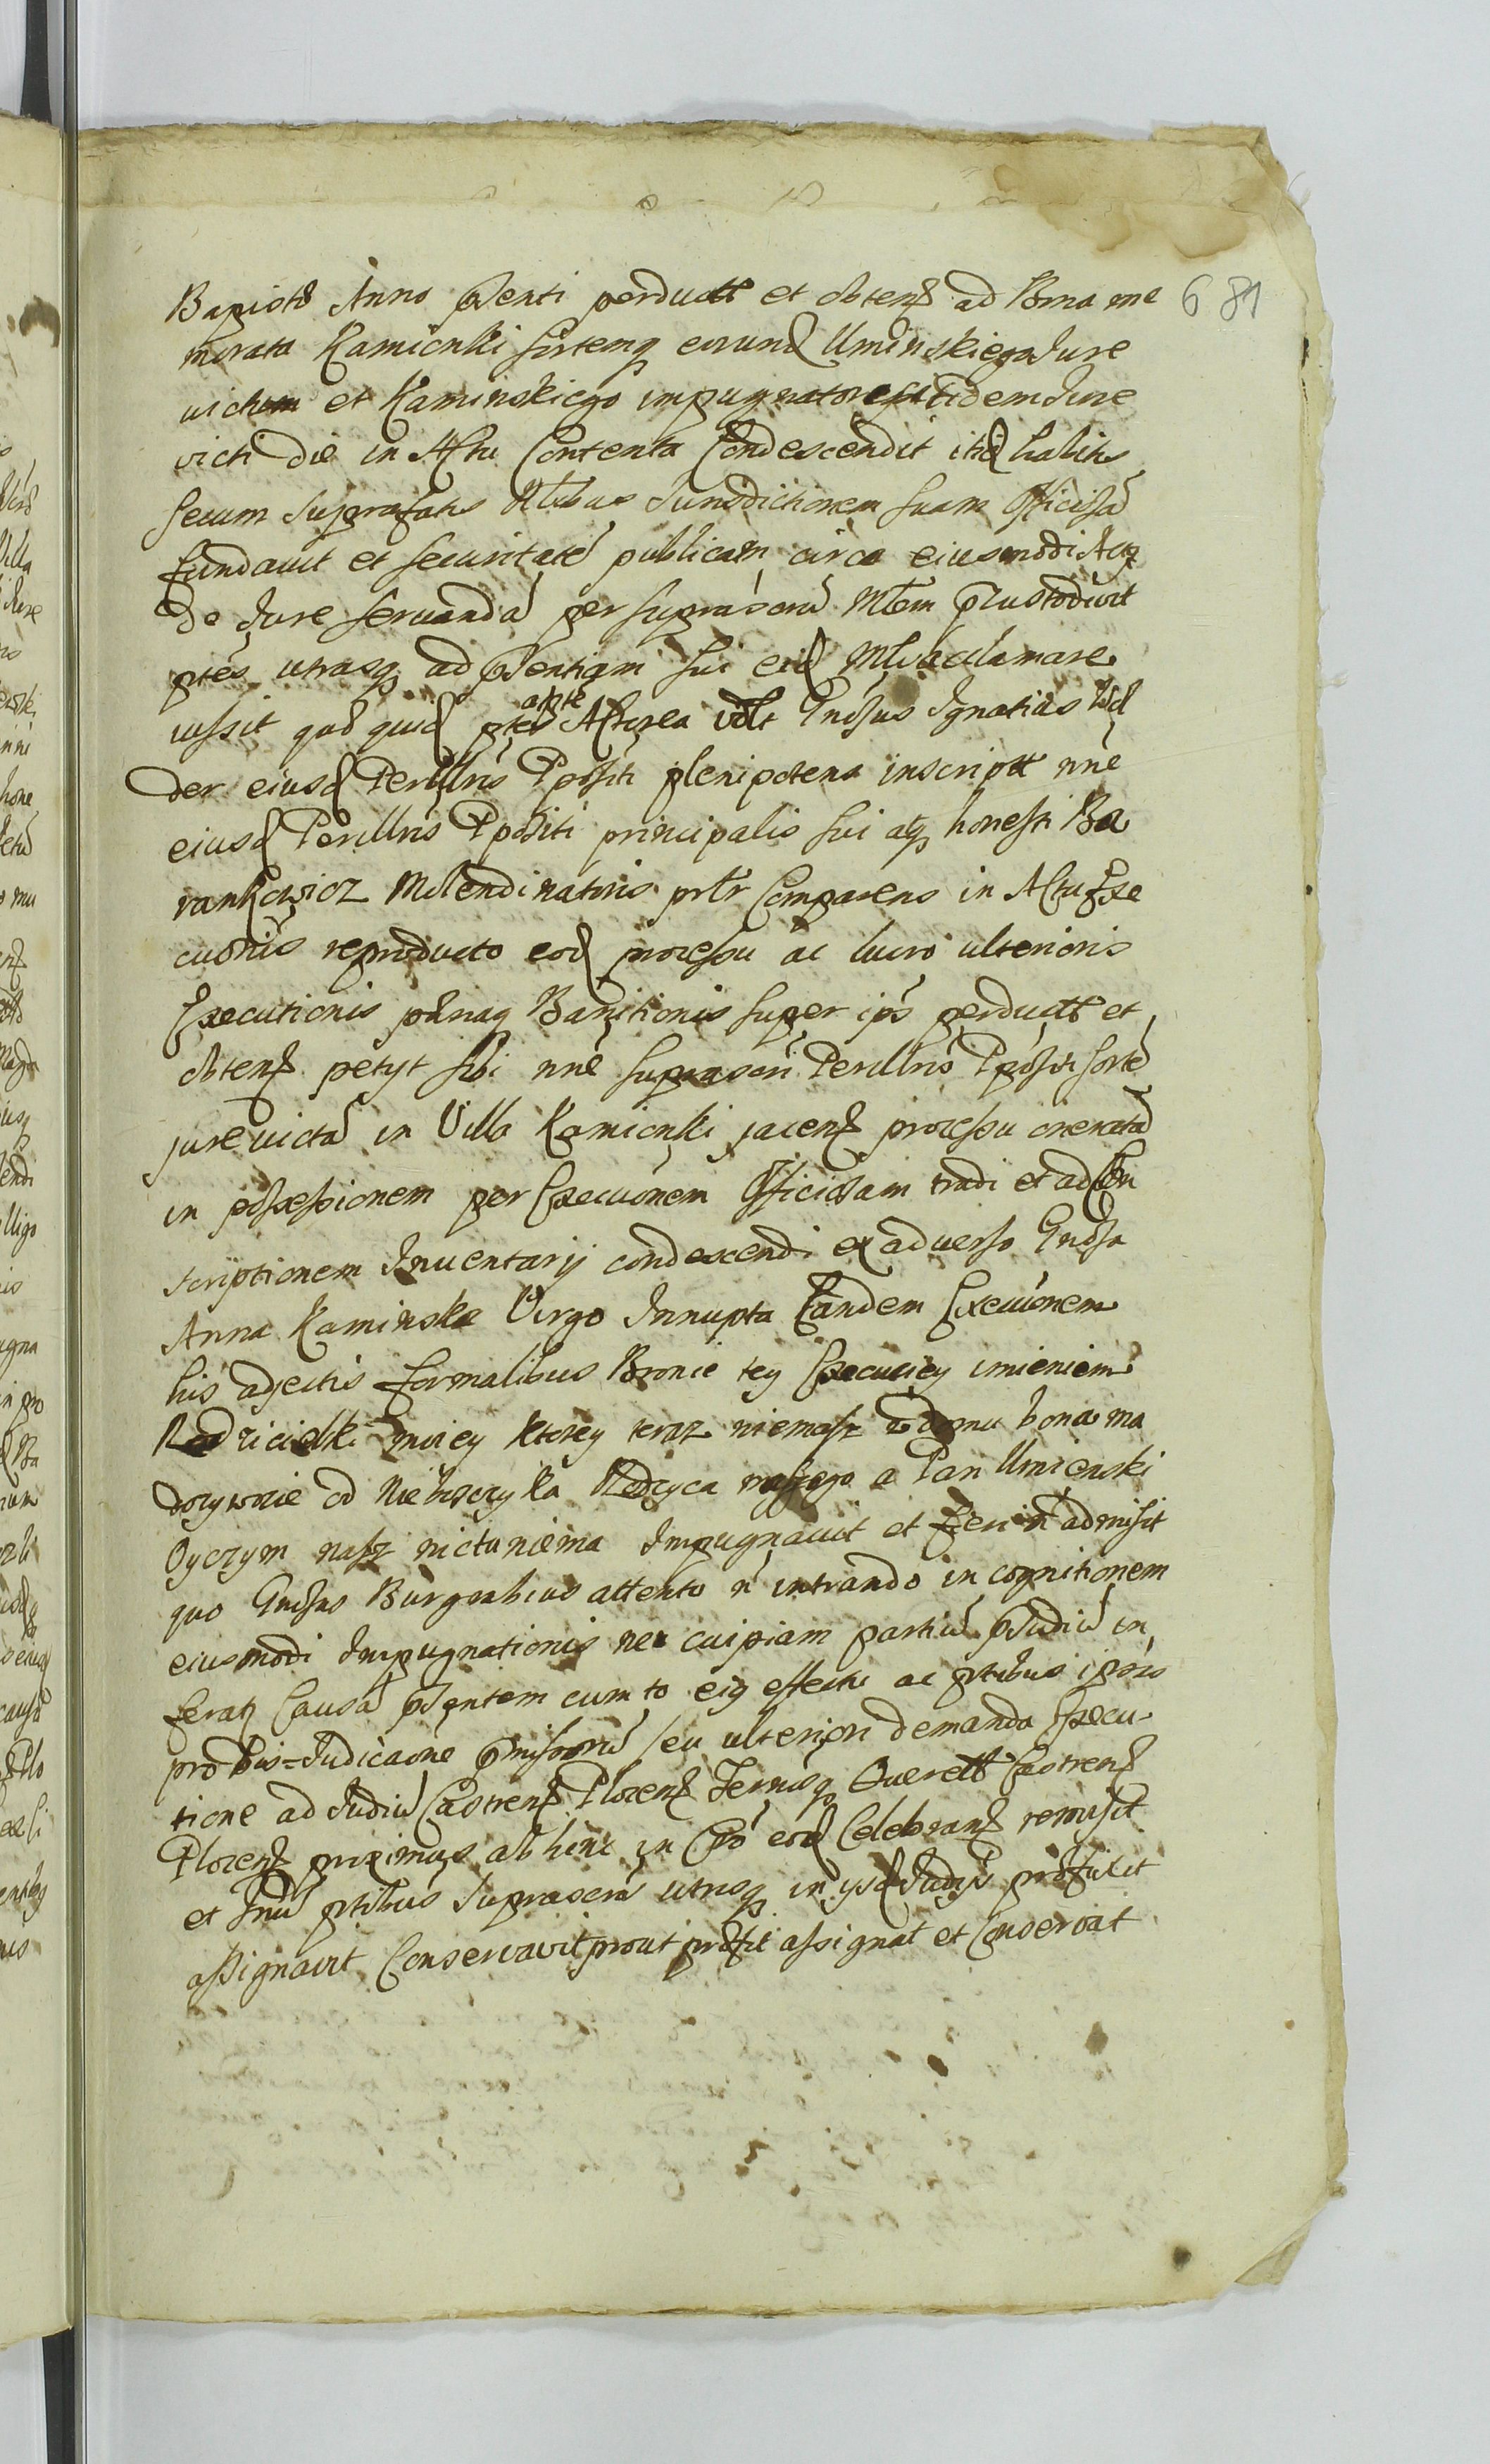 Bapistæ Anno Psenti perductt et obtenß ad Bona me 681
morata Kamicnki sortemq eorund Uminskiego Jure
victum et Kaminskiego impugnatores itidem Jure
victi die in Actu Contenta Condescendit ibiq habitis
secum supranotatis Nlibus Jurisdictionem suam Officiosã
fundavit et securitatē publicam circa eiusmodi Actũ
de Jure servandã per suprascrũ Mlem Pcustodivit
ptes utrasq ad Psentiam sui eid Mli acclamare
iussit quo quid ptes ante Actorea vdlt Gnosus Ignatius
der eiusd Perillris Ppositi plenipotens inscriptt nnē
eiusd Perillris Ppositi principalis sui atq honesti Ba
rankowicz Molendinatoris prtr Comparens in Actu Exe
cuōnis reproducto eod processu ac lucro ulterioris
Executionis pænaq Banitionis super ips perductt et
obtenß petyt sibi nnē suprascri Perillris Ppositi sortē
jure victã in Villa Kamicnki jacenß processu oneratã
in possessionem per Execuōnem Officiosam tradi et ad Con
scriptionem Inventarij condescendi ex adverso Gnosa
Anna Kaminska Virgo Innupta Eandem Execuōnem
his adjectis formalibus Bronie tey Execucyey imieniem
Rodzicielki moiey ktorey teraz niemasz w domu bona ma
dozywocie od Niebosczyka Rodzyca naszego a Pan Umienski
Oyczym nasz nic tu niema Impugnavit et fieri ñ admisit
quo Gnosus Burgrabius attento ñ intrando in cognitionem
eiusmodi Impugnationis ne cuipiam partiũ Pjudiũ in
ferat Causã Psentem cum to eiq effectu ac ptibus ipsis
pro Dis-Judicaōne Pmissorũ seu ulteriori demanda Execu-
tione ad Judiũ Castrenß Plocenß Termisq Querett Castrenß
Plocenß proximus ab hinc in Cro eod Celebranß remisit
et Tnũ ptibus suprascris utrisq in ysd Judys prefixit
assignavit Conservavit prout prefit assignat et Conservat